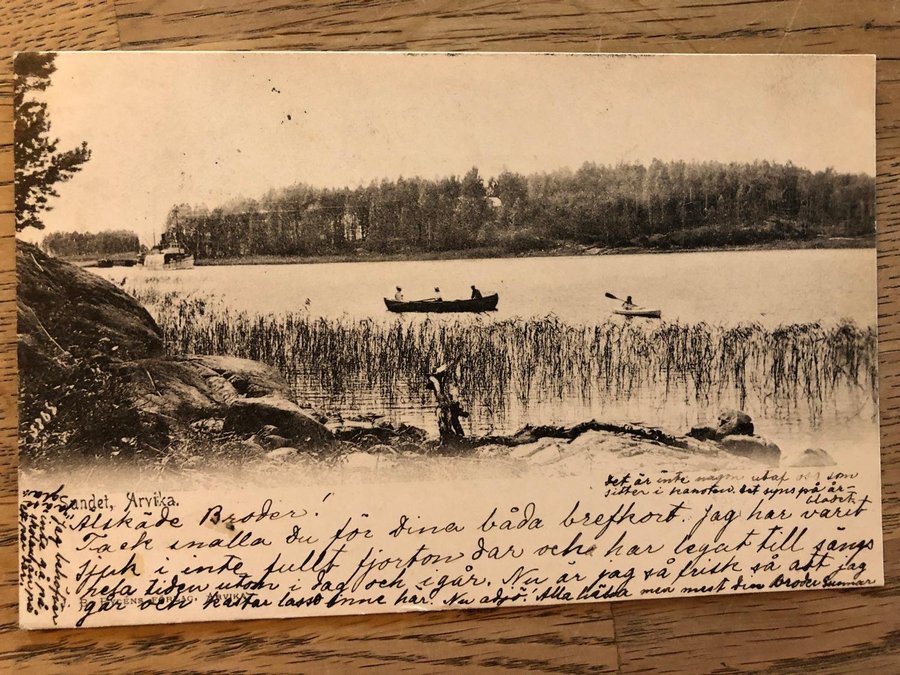 Sundet, Arvika.
Det är inte någon utaf oss som
sitter i kanoten. Det syns på år-
bladet.
Älskade Broder!
Tack snälla du för dina båda brefkort. Jag har varit
sjuk i inte fullt fjorton dar och har legat till sängs
hela tiden utom i dag och i går. Nu är jag så frisk så att jag
går och kastar lasso inne har. Nu adjö! Alla hälsa men mest din broder Gunnar
FÖRLAG, ARVIKA